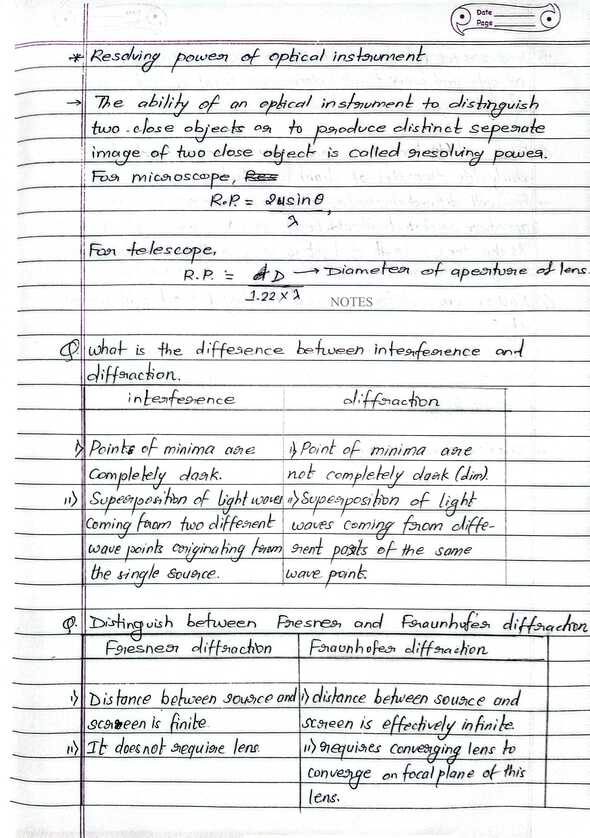 Date
Page
* Resolving power of optical instrument
→ The ability of an optical instrument to distinguish
two close objects or to produce distinct seperate
image of two close object is called resolving power.
For microscope,
R.P. = 2μsinθ
λ
For telescope,
R.P. = D → Diameter of aperture of lens.
1.22 × λ
NOTES
Q. what is the difference between interference and
diffraction.
interference diffraction
i) Points of minima are
completely dark.
i) Point of minima are
not completely dark (dim).
ii) Superposition of light waves
coming from two different
wave points originating from
the single source.
ii) Superposition of light
waves coming from diffe-
rent parts of the same
wave point.
Q. Distinguish between Fresner and Fraunhofer diffraction
Fresner diffraction Fraunhofer diffraction
i) Distance between source and
screen is finite
i) distance between source and
screen is effectively infinite.
ii) It does not require lens.
ii) requires converging lens to
converge on focal plane of this
lens.